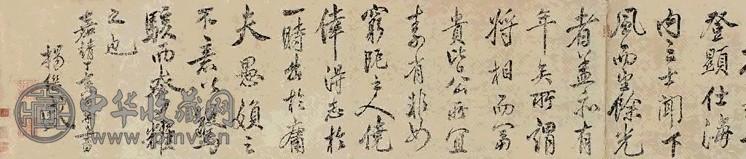 登顯仕海
內之士聞下
風而望餘光
者蓋亦有
年矣所謂
將相而富
貴皆公所宜
素有非如
窮阨之人僥
倖得志於
一時出於庸
夫愚婦之
不意以驚
駭而夸耀
之也
嘉靖丁
楊繼
中华收藏网